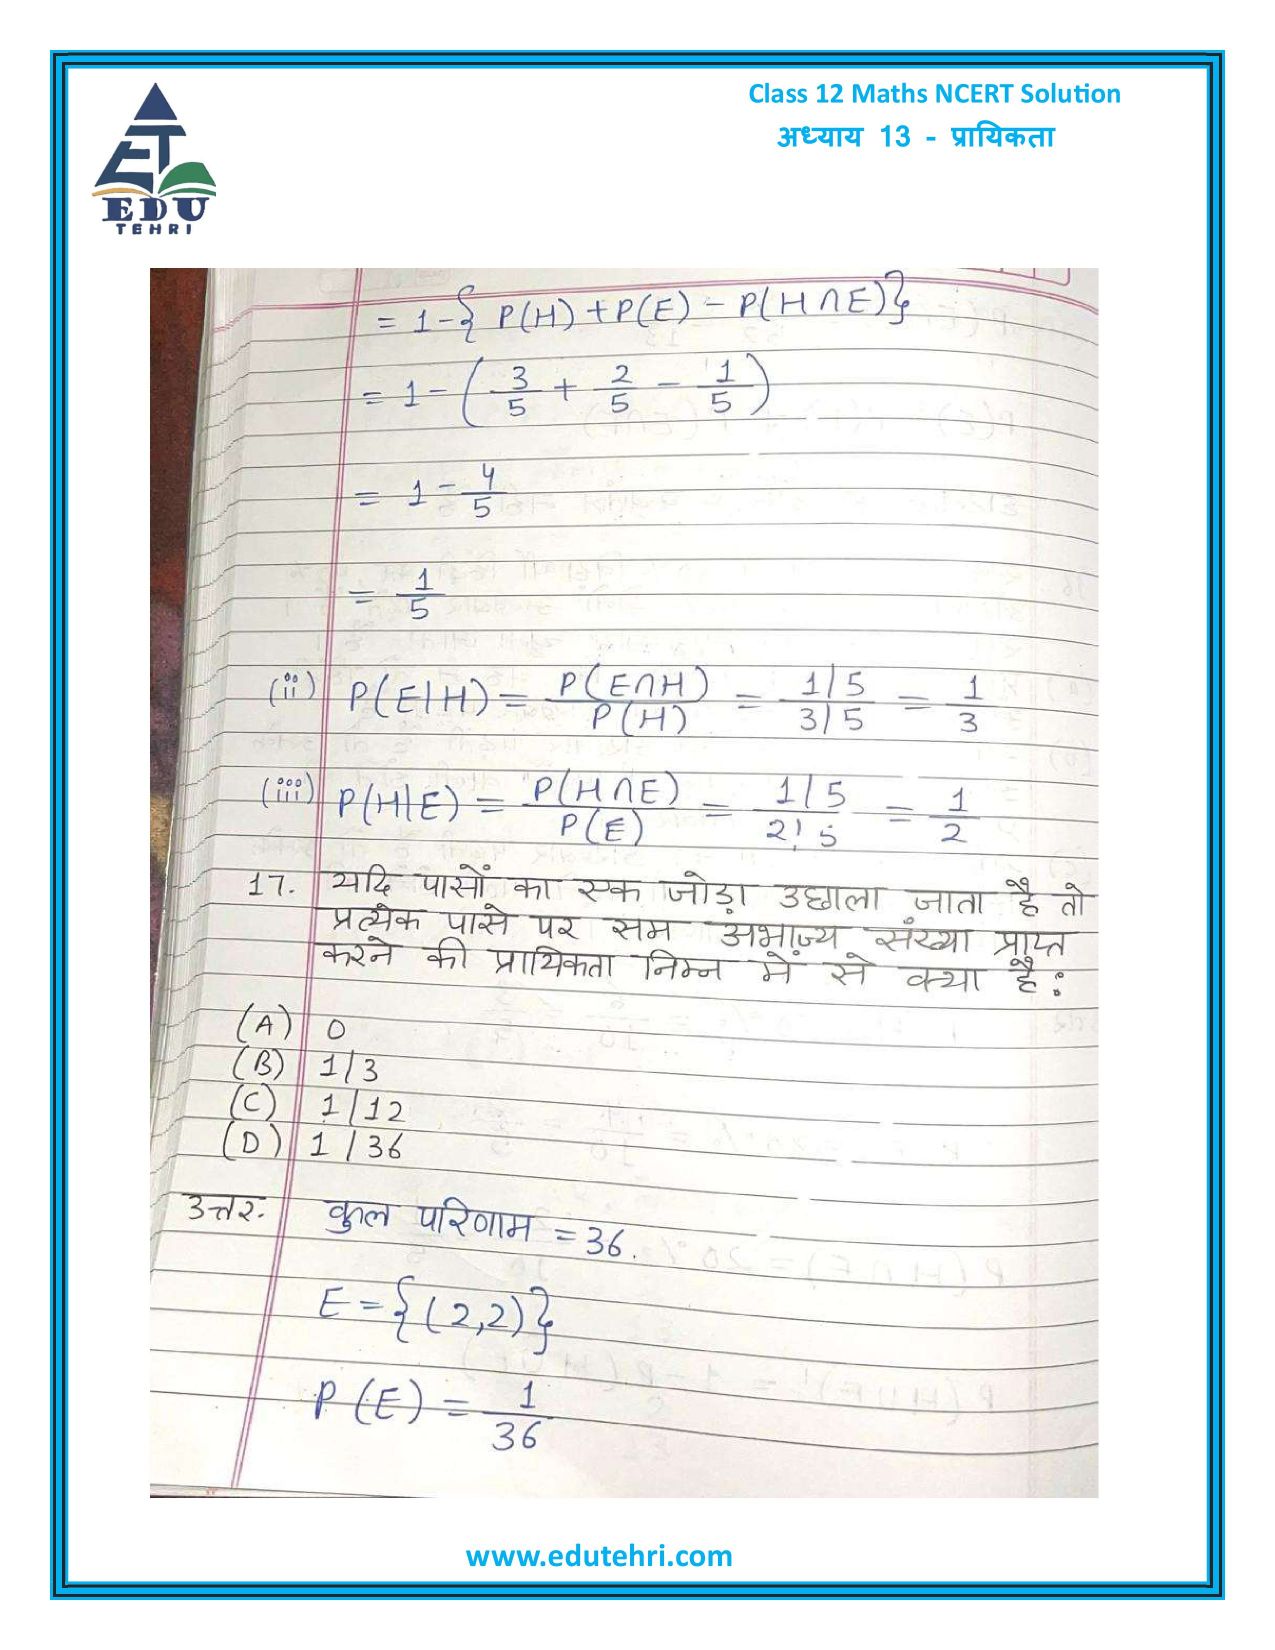 Class 12 Maths NCERT Solution
अध्याय 13 - प्रायिकता
EDU
TEHRI
= 1-{ P(H) + P(E) - P(H∩E)}
= 1 - ( 3/5 + 2/5 - 1/5 )
= 1 - 4/5
= 1/5
(ii) P(E|H) = P(E∩H)/P(H) = 1/5 / 3/5 = 1/3
(iii) P(H|E) = P(H∩E)/P(E) = 1/5 / 2/5 = 1/2
17. यदि पासों का एक जोड़ा उछाला जाता है तो
प्रत्येक पासे पर सम अभाज्य संख्या प्राप्त
करने की प्रायिकता निम्न में से क्या है:
(A) 0
(B) 1/3
(C) 1/12
(D) 1/36
उत्तर. कुल परिणाम = 36.
E = {(2,2)}
P(E) = 1/36
www.edutehri.com